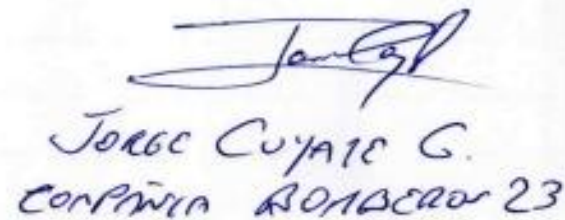 JORGE CUYATE G.
COMPAÑIA BOMBEROS 23